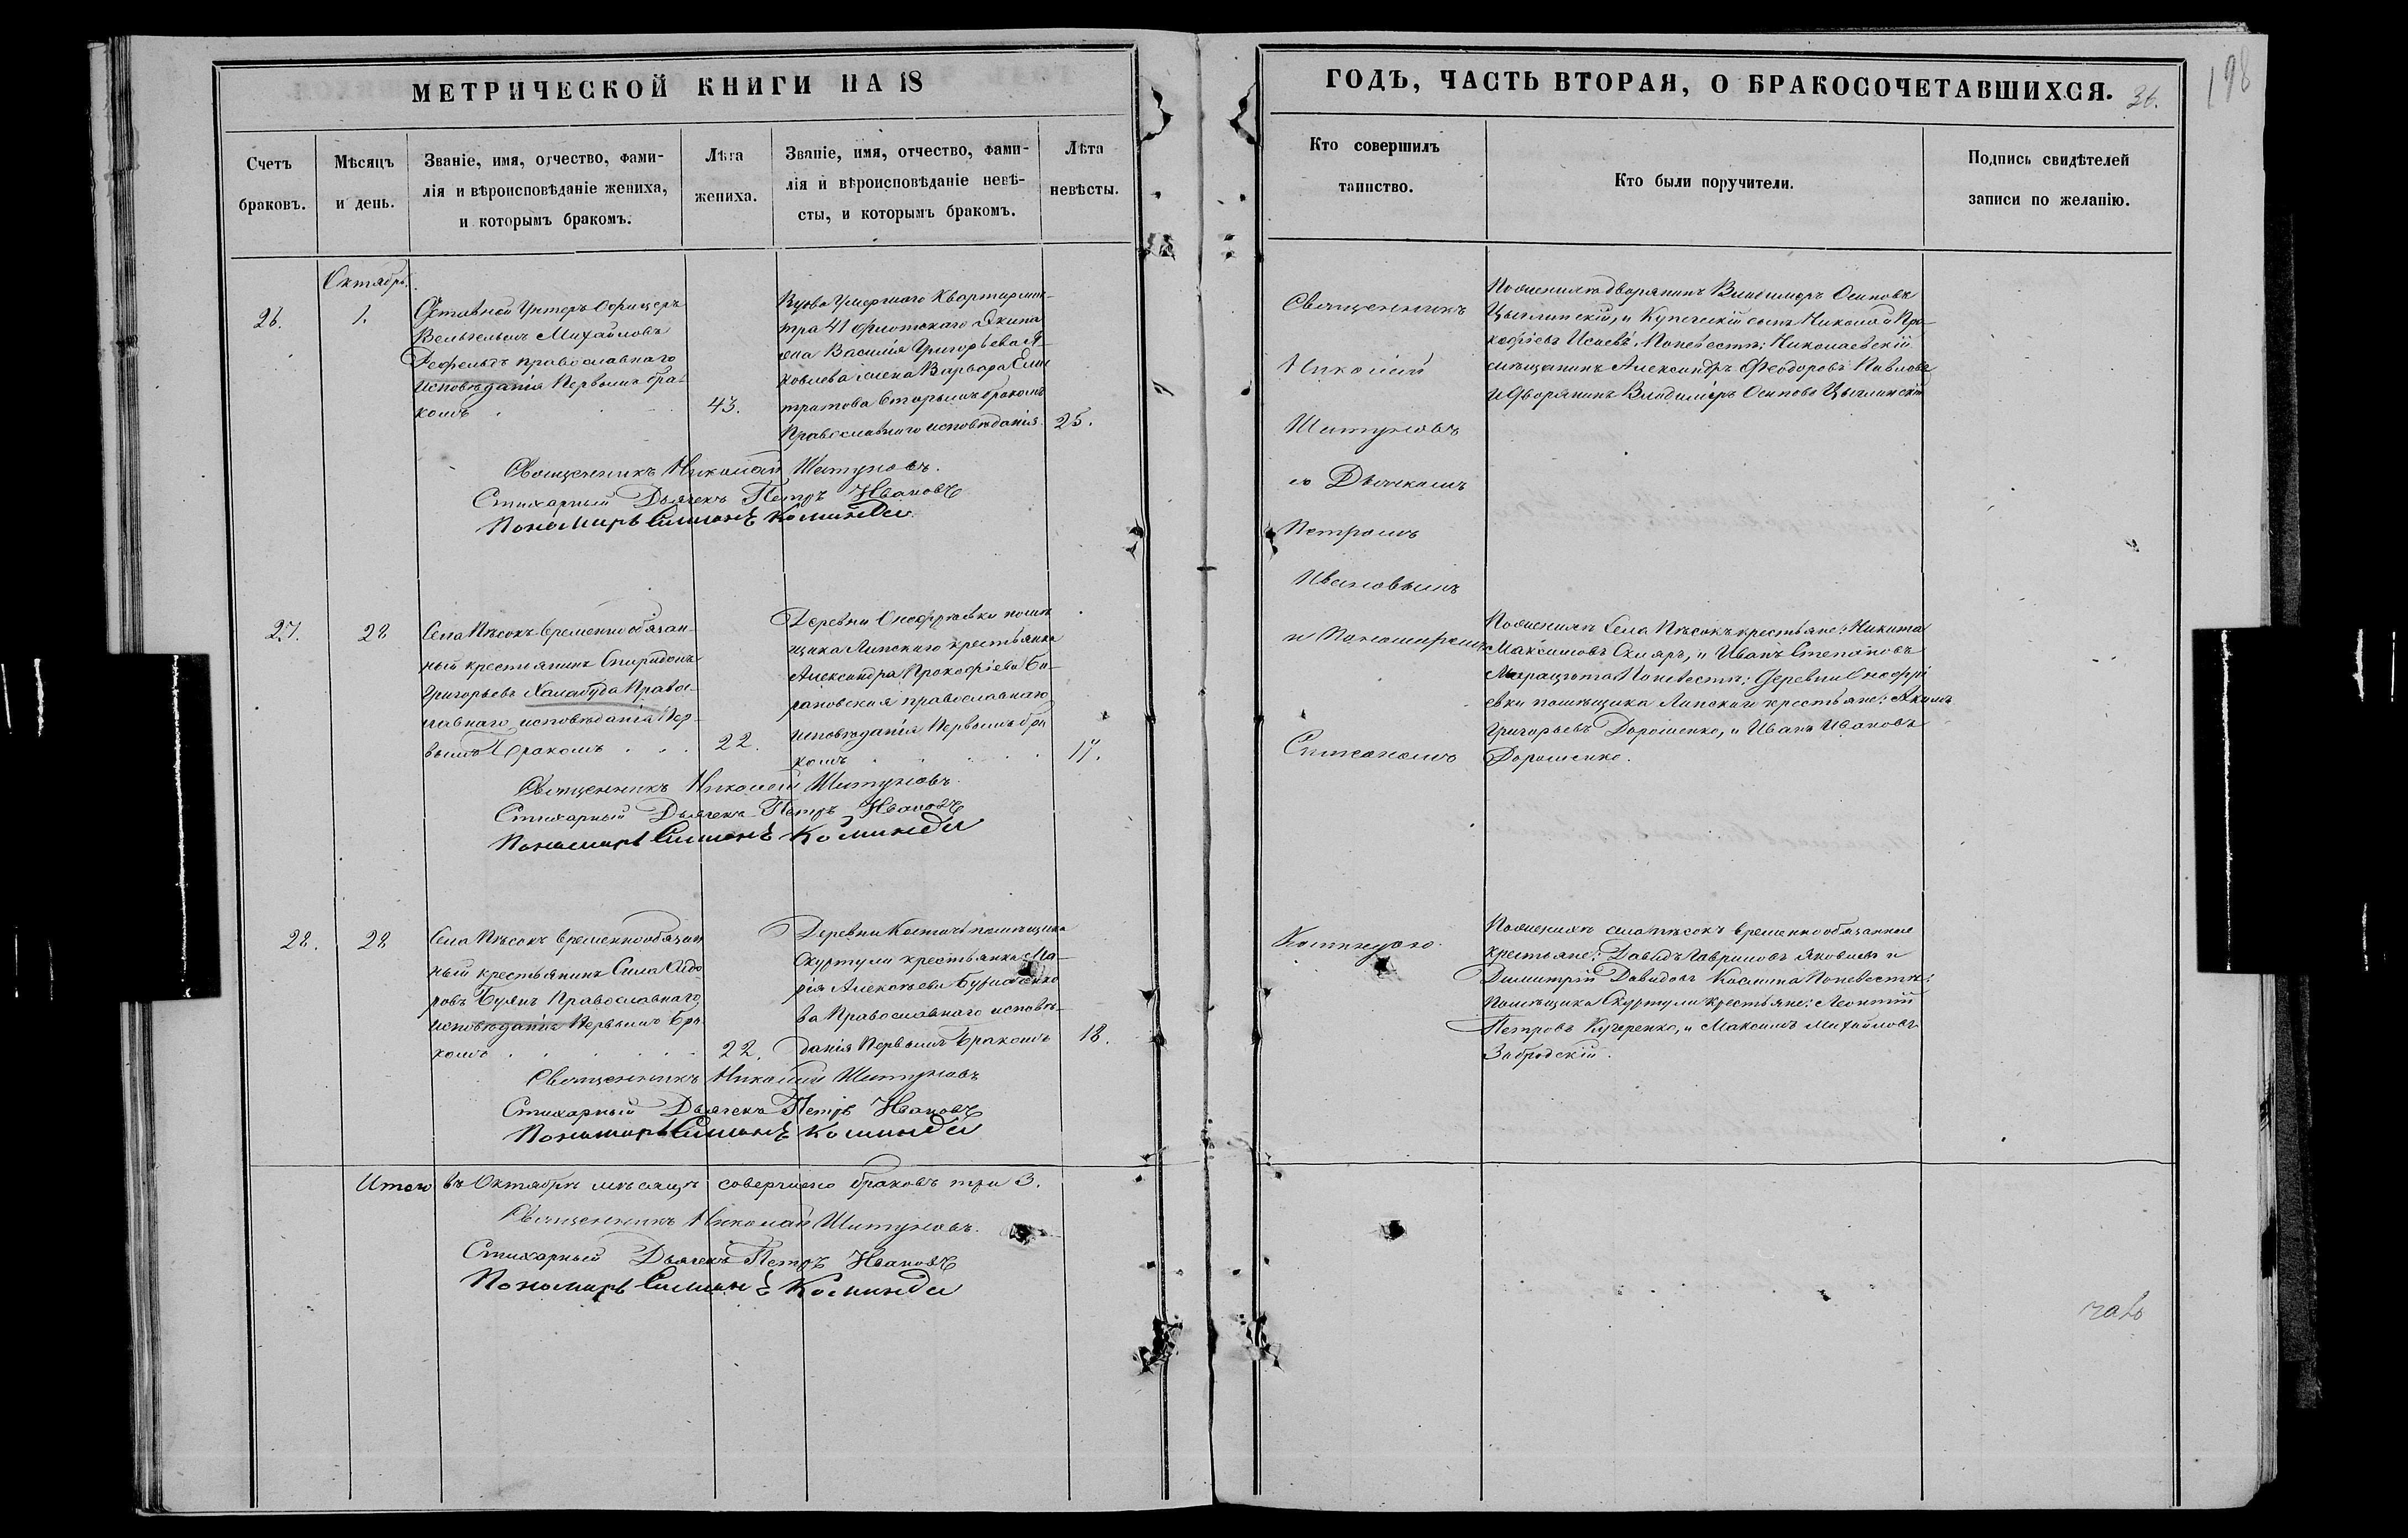 МЕТРИЧЕСКОЙ КНИГИ НА 18
Счетъ браковъ.
Мѣсяцъ и день.
Званіе, имя, отчество, фами-
лія и вѣроисповѣданіе жениха,
и которымъ бракомъ.
Лѣта жениха.
Званіе, имя, отчество, фами-
лія и вѣроисповѣданіе невѣ-
сты, и которымъ бракомъ.
Лѣта невѣсты.
Октябрь.
26.
1.
Отставной Унтеръ Офицеръ
Вельгельмъ Михайловъ
православнаго
исповѣданія Первымъ бра-
комъ
43.
Вдова Умершаго Квартирмис-
тра 41 флотскаго Экипа
жа Василія Григорьева Я-
ковлева жена Варвара
вторымъ бракомъ
Православнаго исповѣданія
25.
Священникъ Николай Шитуновъ.
Стихарный Дьячекъ Петръ Ивановъ
Пономарь Симеонъ
27.
28
Села Пѣсокъ временно обязан-
ный крестьянинъ Спиридонъ
Григорьевъ Халабуда Право-
славнаго исповѣданія Пер-
вымъ Бракомъ
22.
Деревни Онофріевки помѣ
щика Липскаго крестьянка
Александра Прокофіева Ба-
рановская православнаго
исповѣданія Первымъ бра
комъ
17.
Священникъ Николай Шитуновъ.
Стихарный Дьячекъ Петръ Ивановъ
Пономарь Симеонъ
28.
28
Села Пѣсокъ временнообязан
ный крестьянинъ Сила Сидо
ровъ Буянъ Православнаго
исповѣданія Первымъ Бра
комъ
22.
Деревни помѣщика
Скуртули крестьянка Ма-
рія Алексѣева
ва Православнаго исповѣ-
данія Первымъ Бракомъ
18.
Священникъ Николай Шитуновъ
Стихарный Дьячекъ Петръ Ивановъ
Пономарь Симеонъ
Итого въ Октябрѣ мѣсяцѣ совершено браковъ три 3.
Священникъ Николай Шитуновъ.
Стихарный Дьячекъ Петръ Ивановъ
Пономарь Симеонъ
ГОДЪ, ЧАСТЬ ВТОРАЯ, О БРАКОСОЧЕТАВШИХСЯ.
36.
198
Кто совершилъ таинство.
Кто были поручители.
Подпись свидѣтелей
записи по желанію.
Священникъ
Николай
Шитуновъ
съ Дьячкомъ
Петромъ
Ивановымъ
и Пономаремъ
Симеономъ
По женихѣ дворянинъ Владимиръ Осиповъ
и Купеческій сынъ Николай Про-
кофіевъ Исаевъ. По невѣстѣ: Николаевскій
мѣщанинъ Александръ Феодоровъ Павловъ
и Дворянинъ Владиміръ Осиповъ
По женихѣ Села Пѣсокъ крестьяне: Никита
Максимовъ Скляръ, и Иванъ Степановъ
По невѣстѣ: Деревни Онофрі
евки помѣщика Липскаго крестьяне: Якимъ
Григорьевъ Дорошенко, и Иванъ Ивановъ
Дорошенко.
По женихѣ села Пѣсокъ временно обязанные
крестьяне: Давидъ Гавриловъ Яковлевъ и
Димитрій Давидовъ По невѣстѣ:
Помѣщика Скуртули крестьяне: Леонтій
Петровъ Кучеренко, и Максимъ Михайловъ
Забродскій.